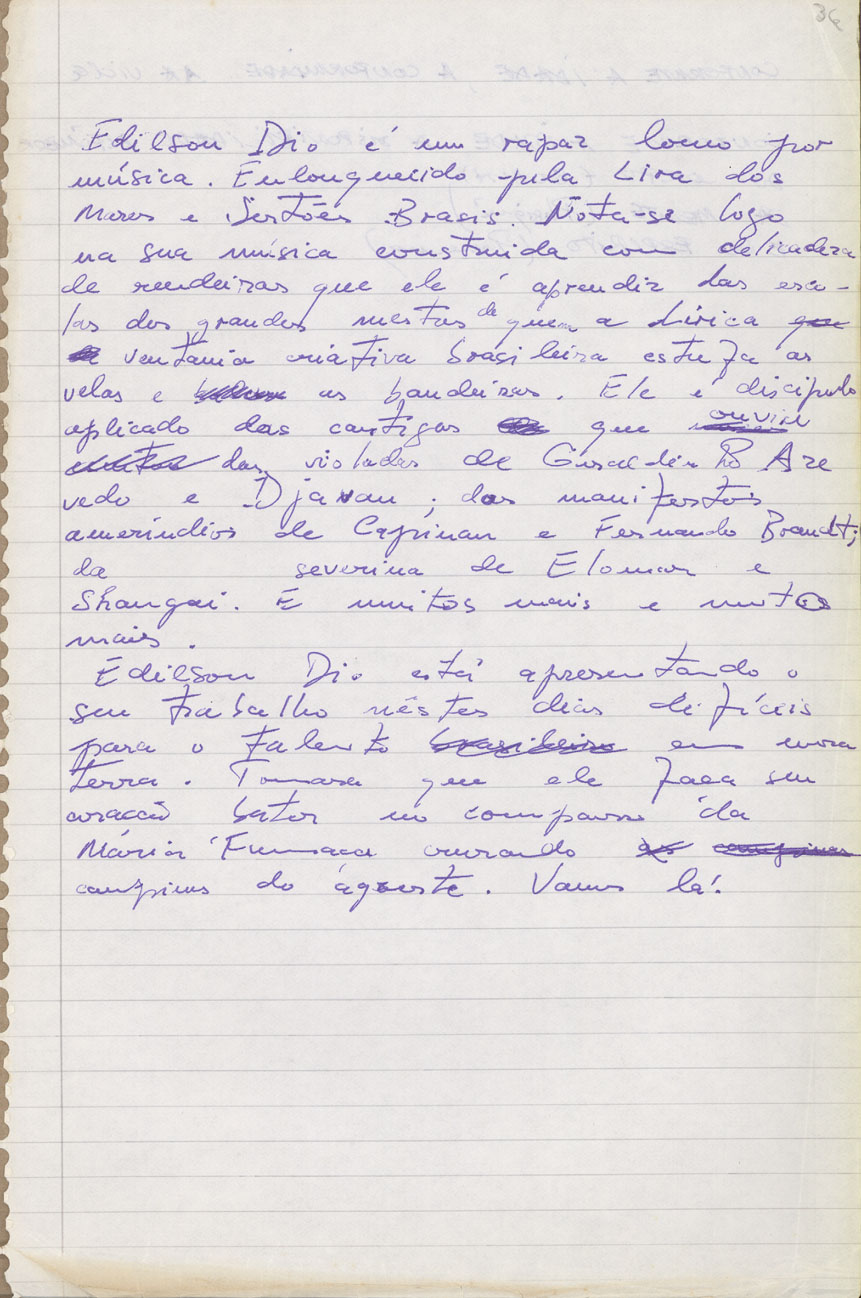 36
Edilson Dio é um rapaz louco por
música. Enlouquecido pela Lira dos
Mares e Sertões Brasis. Nota-se logo
na sua música construida com delicadeza
de rendeiras que ele é aprendiz das esco-
las dos grandes mestres de quem a Lírica
ventania criativa brasileira estufa as
velas e as bandeiras. Ele é discipulo
aplicado das cantigas que ouviu
das violadas de Geraldinho Aze
vedo e Djavan; dos manifestos
ameríndios de Capinan e Fernando Brandt;
da severina de Elomar e
Shangai. E muitos mais e muitos
mais.
Edilson Dio está apresentando o
seu trabalho nêstes dias difíceis
para o talento brasileiro em nossa
terra. Tomara que ele faça seu
coração bater no compasso da
Maria Fumaça cruzando
campinas do agreste. Vamos lá!